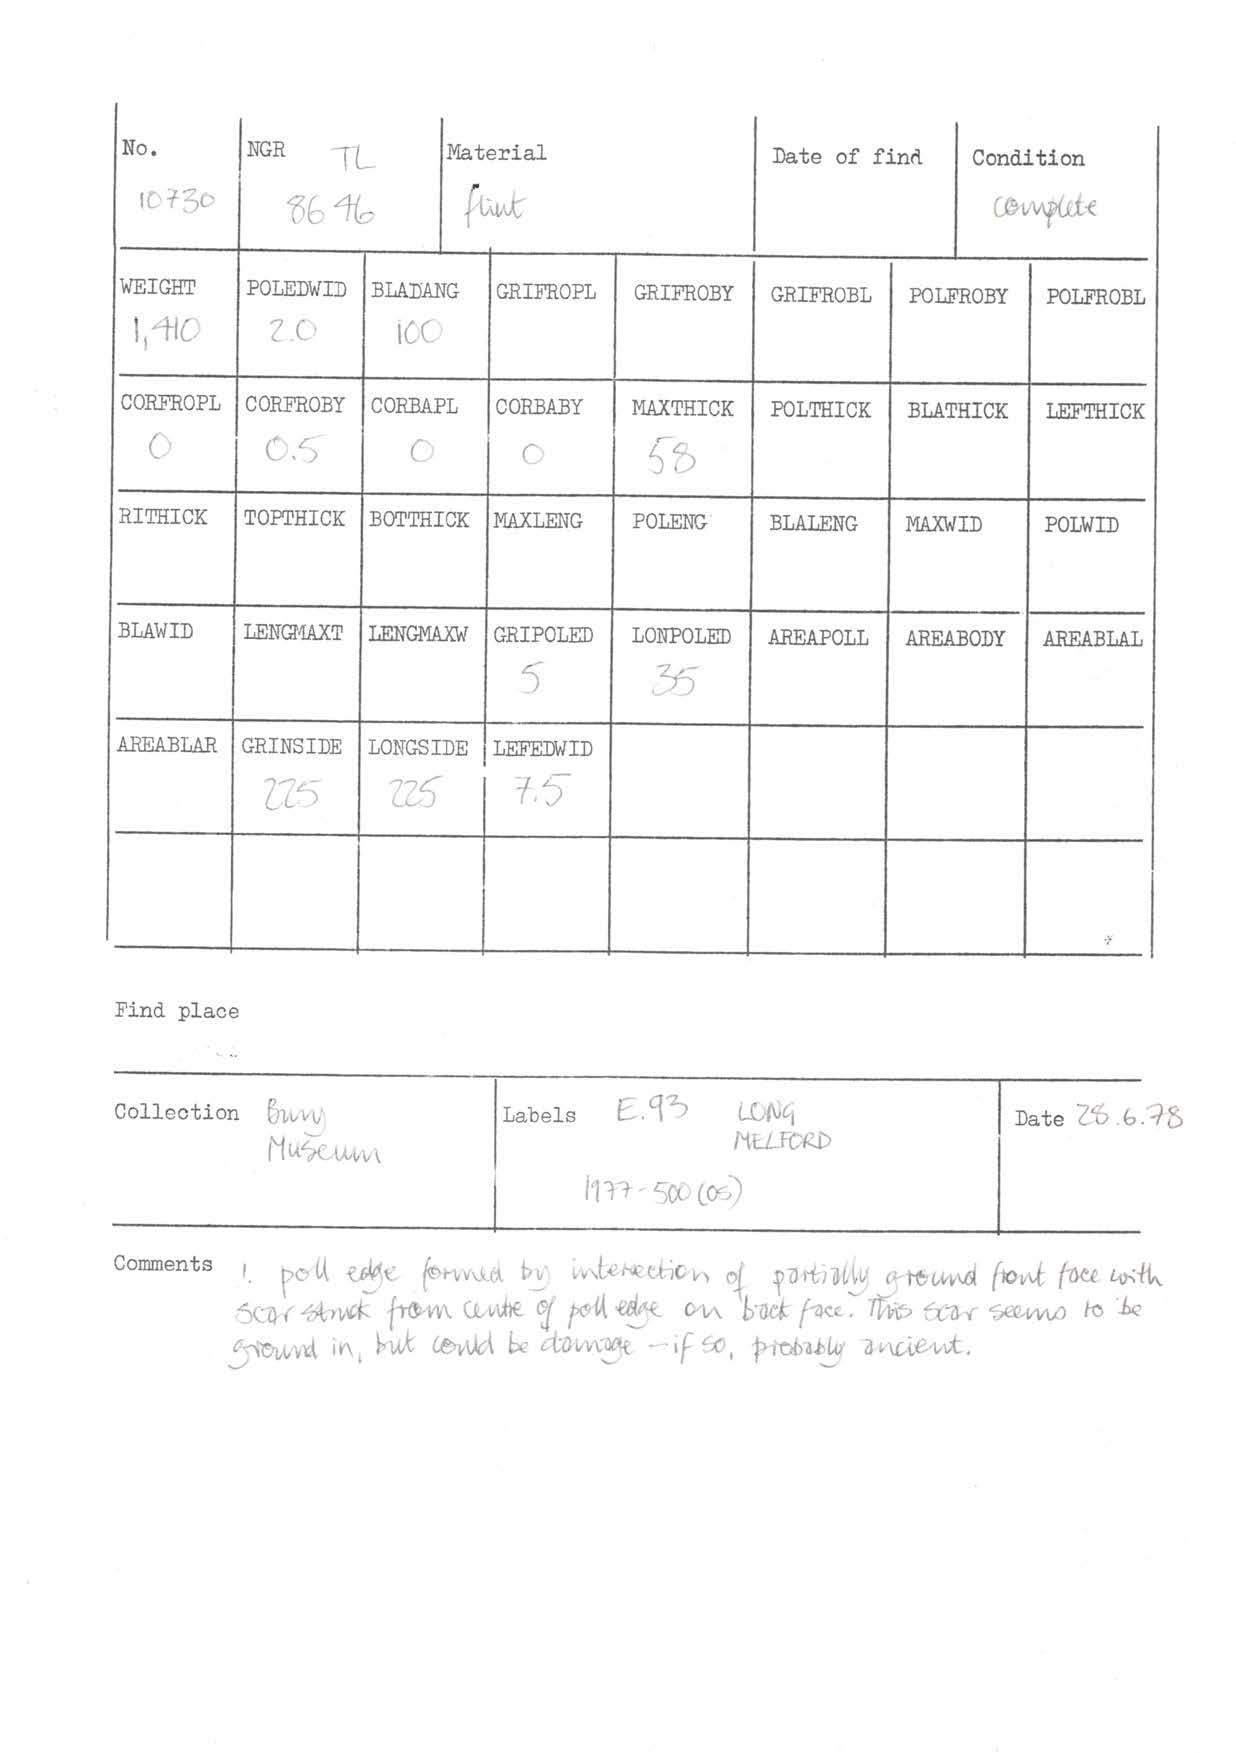 No. NGR TL Material Date of find Condition
10730 8646 flint complete
WEIGHT POLEDWID BLADANG GRIFROPL GRIFROBY GRIFROBL POLFROBY POLFROBL
1,410 2.0 100
CORFROPL CORFROBY CORBAPL CORBABY MAXTHICK POLTHICK BLATHICK LEFTHICK
0 0.5 0 0 58
RITHICK TOPTHICK BOTTHICK MAXLENG POLENG BLALENG MAXWID POLWID
BLAWID LENGMAXT LENGMAXW GRIPOLED LONPOLED AREAPOLL AREABODY AREABLAL
5 35
AREABLAR GRINSIDE LONGSIDE LEFEDWID
225 225 7.5
Find place
Collection Bury Labels E.93 LONG Date 28.6.78
Museum MELFORD
1977-500(OS)
Comments 1. poll edge formed by intersection of partially ground front face with
scar struck from centre of poll edge on back face. This scar seems to be
ground in, but could be damage – if so, probably ancient.